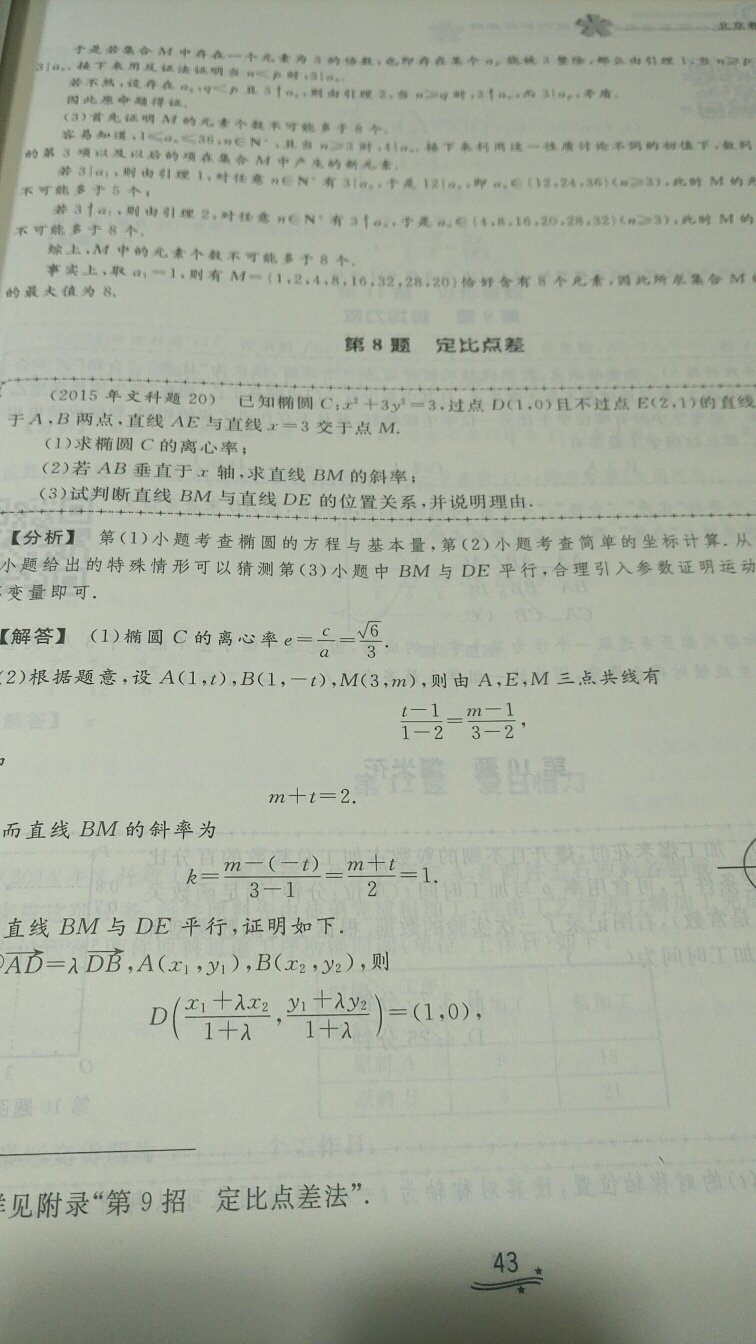 北京
于是若集合 M 中存在一个元素为 3 的倍数,也即存在某个 aₖ 能被 3 整除,那么由引理 1,当 n≥p
3|aₙ. 接下来用反证法证明当 n<p 时,3|aₙ.
若不然,设存在 a_q,q<p 且 3∤a_q,则由引理 2,当 n≥q 时,3∤aₙ,而 3|aₚ,矛盾.
因此原命题得证.
(3)首先证明 M 的元素个数不可能多于 8 个.
容易知道,1≤aₙ≤36,n∈N*,且当 n≥3 时,4|aₙ. 接下来利用这一性质讨论不同的初值下,数列
的第 3 项以及以后的项在集合 M 中产生的新元素.
若 3|a₁,则由引理 1,对任意 n∈N* 有 3|aₙ,于是 12|aₙ,即 aₙ∈{12,24,36}(n≥3),此时 M 的元
不可能多于 5 个;
若 3∤a₁,则由引理 2,对任意 n∈N* 有 3∤aₙ,于是 aₙ∈{4,8,16,20,28,32}(n≥3),此时 M 的
不可能多于 8 个.
综上,M 中的元素个数不可能多于 8 个.
事实上,取 a₁=1,则有 M={1,2,4,8,16,32,28,20}恰好含有 8 个元素,因此所求集合 M
的最大值为 8.
第 8 题 定比点差
(2015 年文科题 20) 已知椭圆 C:x²+3y²=3,过点 D(1,0)且不过点 E(2,1)的直线
于 A,B 两点,直线 AE 与直线 x=3 交于点 M.
(1)求椭圆 C 的离心率;
(2)若 AB 垂直于 x 轴,求直线 BM 的斜率;
(3)试判断直线 BM 与直线 DE 的位置关系,并说明理由.
【分析】 第(1)小题考查椭圆的方程与基本量,第(2)小题考查简单的坐标计算.从
小题给出的特殊情形可以猜测第(3)小题中 BM 与 DE 平行,合理引入参数证明运动
变量即可.
【解答】 (1)椭圆 C 的离心率 e=c/a=√6/3.
(2)根据题意,设 A(1,t),B(1,-t),M(3,m),则由 A,E,M 三点共线有
(t-1)/(1-2)=(m-1)/(3-2),
m+t=2.
而直线 BM 的斜率为
k=(m-(-t))/(3-1)=(m+t)/2=1.
直线 BM 与 DE 平行,证明如下.
AD=λDB,A(x₁,y₁),B(x₂,y₂),则
D((x₁+λx₂)/(1+λ),(y₁+λy₂)/(1+λ))=(1,0),
见附录“第 9 招 定比点差法”.
43